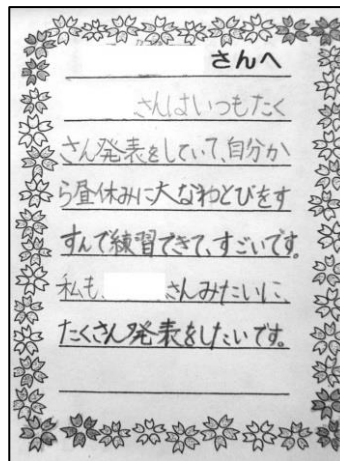 さんへ
さんはいつもたく
さん発表をしていて、自分か
ら昼休みに大なわとびをす
すんで練習できて、すごいです。
私も、さんみたいに、
たくさん発表をしたいです。